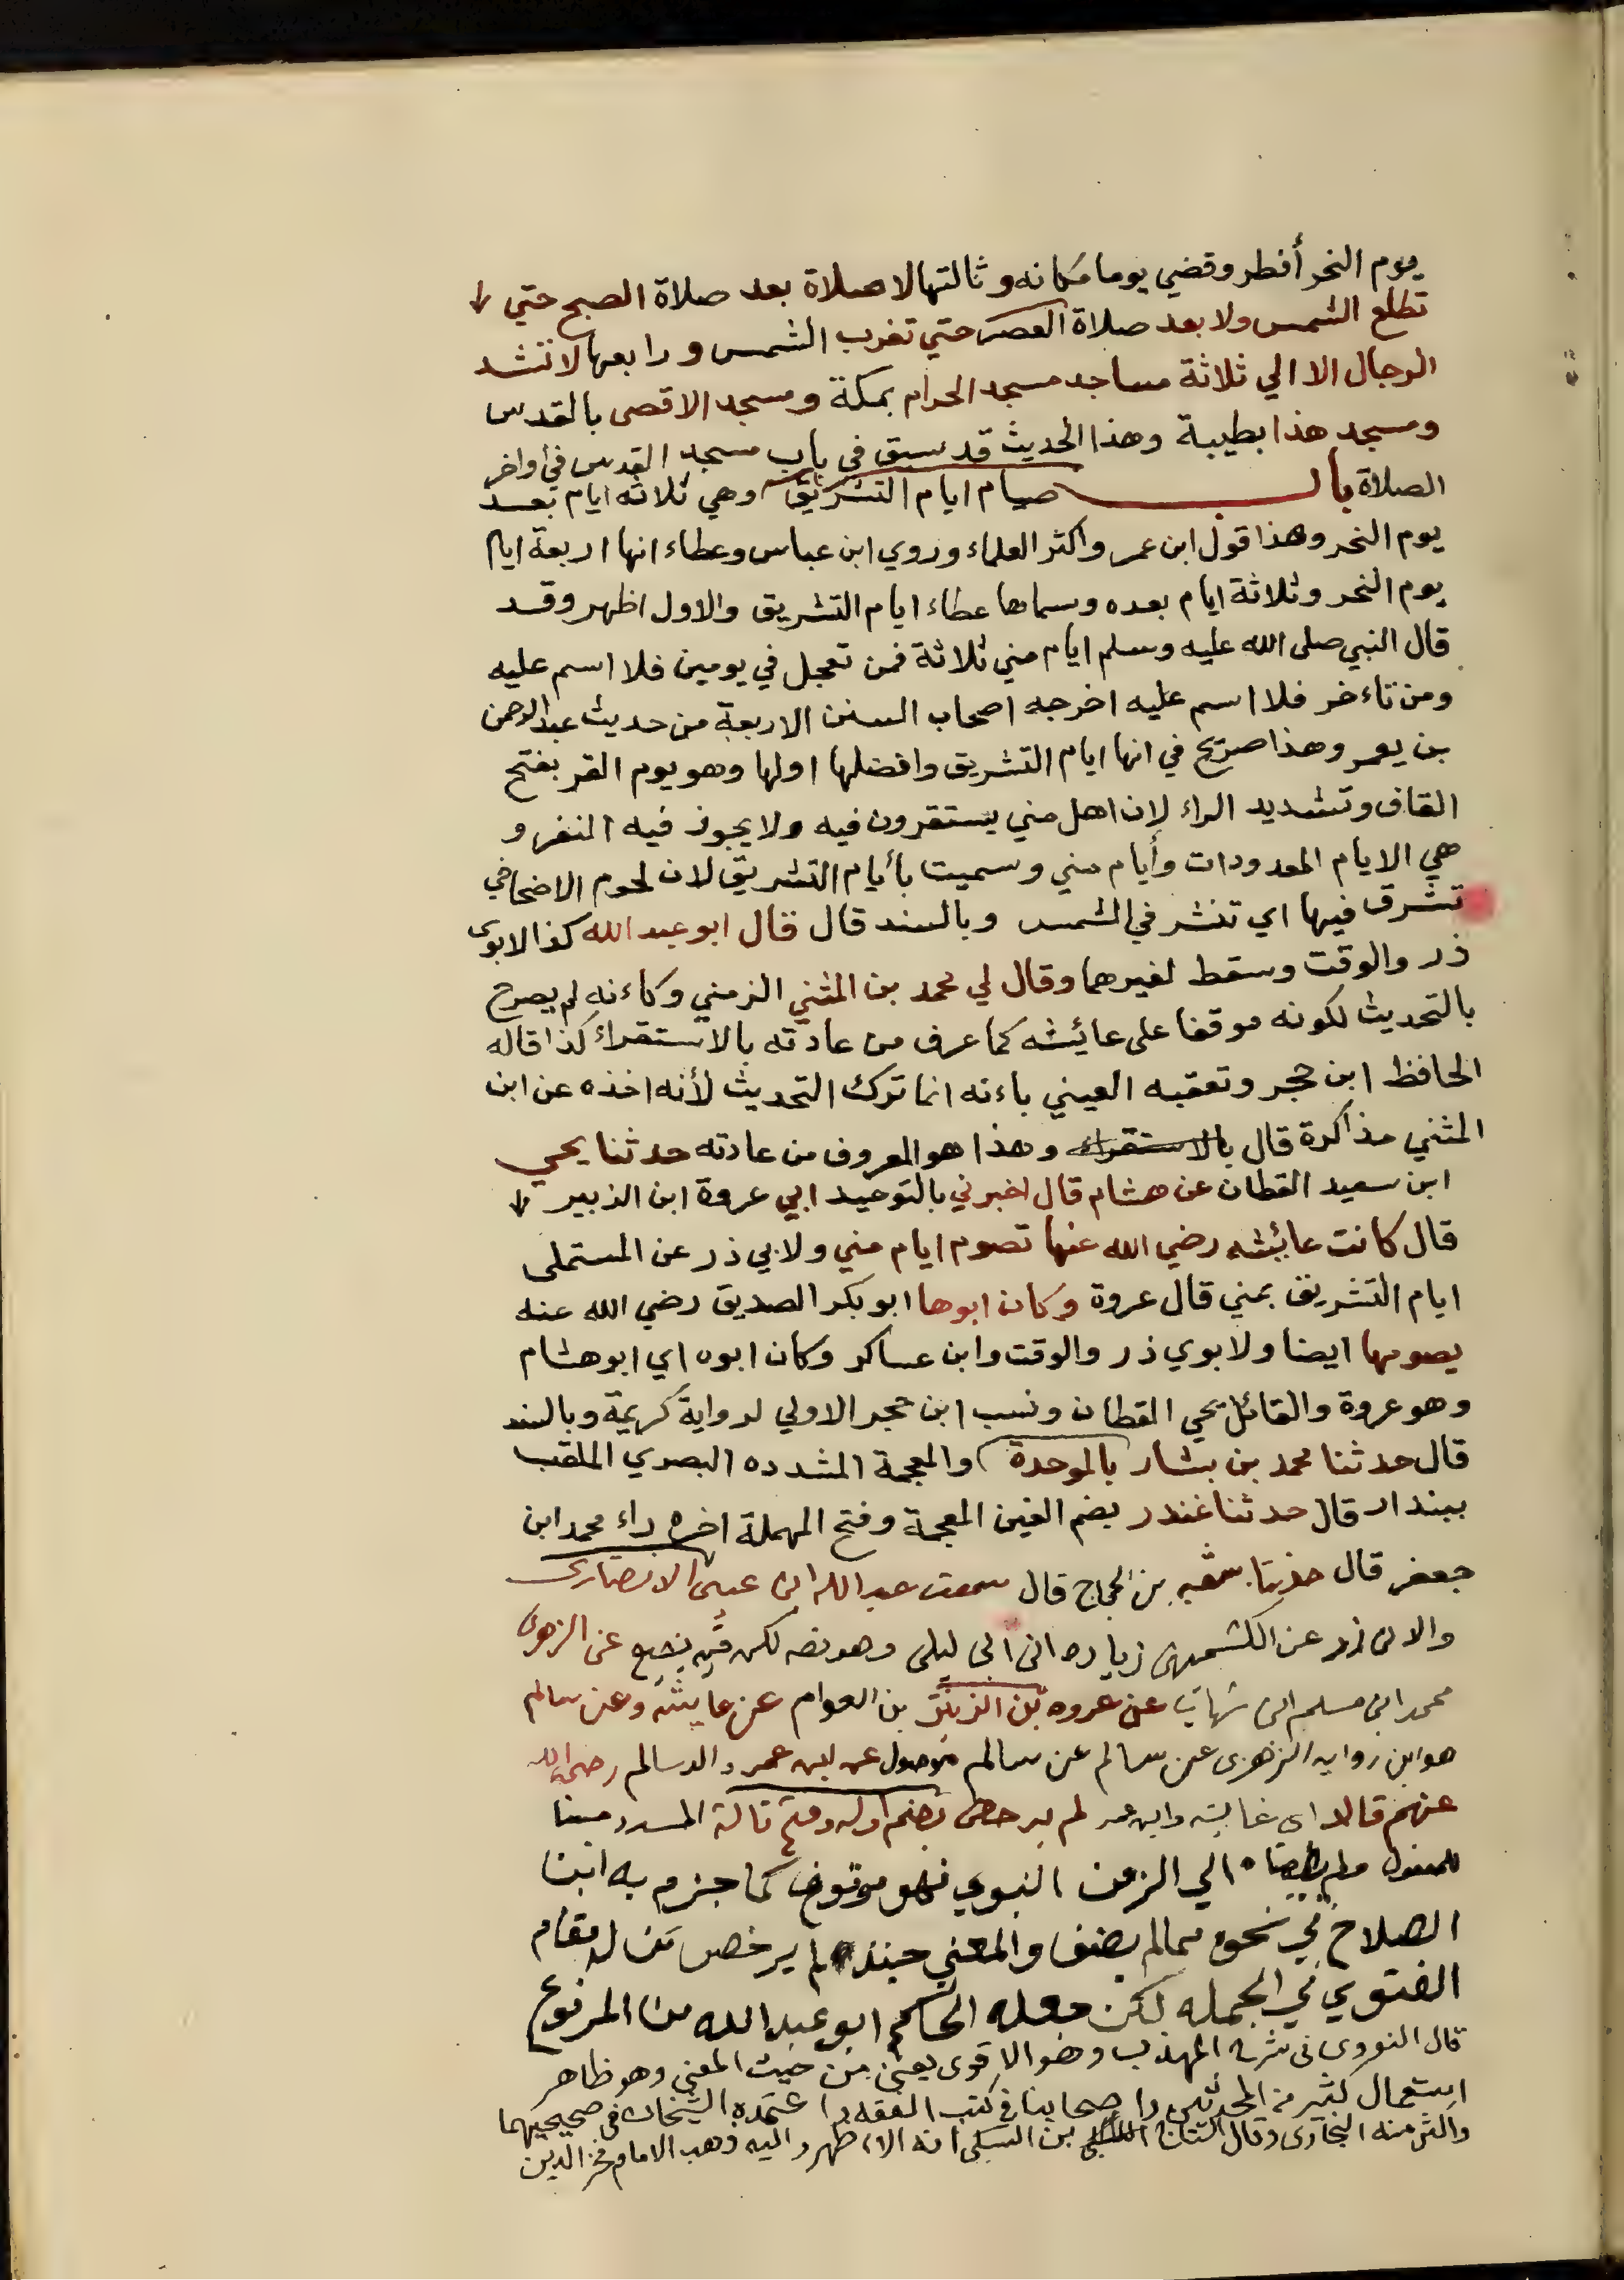 يوم النحر أفطر وقضي يوما مكانه وثالتها لا صلاة بعد صلاة الصبح حتي
تطلع الشمس ولا بعد صلاة العصر حتي تغرب الشمس ورابعها لا تشد
الرحال الا الي ثلاثة مساجد مسجد الحرام بمكة ومسجد الاقصى بالقدس
ومسجد هذا بطيبة وهذا الحديث قد سبق في باب مسجد القدس في اواخر
الصلاة باب صيام ايام التشريق وهي ثلاثه ايام بعد
يوم النحر وهذا قول ابن عمر واكثر العلماء وروي ابن عباس وعطاء انها اربعة ايام
يوم النحر وثلاثة ايام بعده وسماها عطاء ايام التشريق والاول اظهر وقد
قال النبي صلى الله عليه وسلم ايام مني ثلاثة فمن تعجل في يومين فلا اسم عليه
ومن تاءخر فلا اسم عليه اخرجه اصحاب السنن الاربعة من حديث عبدالرحمن
بن يعمر وهذا صريح في انها ايام التشريق وافضلها اولها وهو يوم القر بفتح
القاف وتشديد الراء لان اهل مني يستقرون فيه ولا يجوز فيه النفر و
هي الايام المعدودات وأيام مني وسميت بأيام التشريق لان لحوم الاضاحي
تشرق فيها اي تنشر في الشمس وبالسند قال قال ابو عبد الله كذا لابوي
ذر والوقت وسقط لغيرهما وقال لي محمد بن المثني الزمني وكاءنه لم يصرح
بالتحديث لكونه موقفا على عائيشه كما عرف من عادته بالاستقراء كذا قاله
الحافظ ابن حجر وتعقبه العيني باءنه انما ترك التحديث لأنه اخذه عن ابن
المثني مذاكرة قال بالاستقراء وهذا هو المعروف من عادته حدثنا يحي
ابن سعيد القطان عن هشام قال اخبرني بالتوحيد ابي عروة ابن الزبير
قال كانت عائيشه رضي الله عنها تصوم ايام مني ولابي ذر عن المستملى
ايام التشريق بمني قال عروة وكان ابوها ابو بكر الصديق رضي الله عنه
يصومها ايضا ولابوي ذر والوقت وابن عساكر وكان ابوه اي ابو هشام
وهو عروة والقائل يحي القطان ونسب ابن حجر الاولي لرواية كريمة وبالسند
قال حدثنا محمد بن بشار بالموحدة والمعجمة المشدده البصري الملقب
ببندار قال حدثنا غندر بضم الغين المعجمة وفتح المهملة اخره راء محمد ابن
جعفر قال حدثنا شعبه بن الحجاج قال سمعت عبد الله ابن عيسى الانصارى
والابى ذر عن الكشميهنى زياده ابن ابى ليلى وهو ثقه لكن فيه تشيع عن الزهرى
محمد ابن مسلم ابن شهاب عن عروه بن الزبير بن العوام عن عايشه وعن سالم
هو ابن روايه الزهرى عن سالم عن سالم موصول عن ابن عمر والد سالم رضي الله
عنهم قالا اى عايشه وابن عمر لم يرخص بضم اوله وفتح ثالثه المشدد مبنا
للمفعول ولم الي الزمن النبوي فهو موقوف كما جزم به ابن
الصلاح في نحوه مما لم يضف والمعني حينئذ لم يرخص من له مقام
الفتوي في الجمله لكن جعله الحاكم ابو عبد الله من المرفوع
قال النووى فى شرح المهذب وهو الاقوى يعنى من حيث المعني وهو ظاهر
استعمال كثير من المحدثين واصحابنا فى كتب الفقه واعتمده الشيخان فى صحيحيهما
واكثر منه البخارى وقال التاج بن السبكى انه الاظهر واليه ذهب الامام فخر الدين